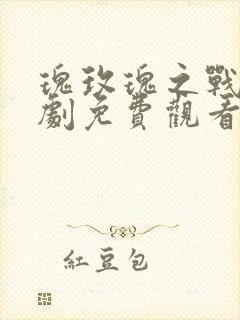 瑰玫瑰之戰
劇免費觀看
紅豆包